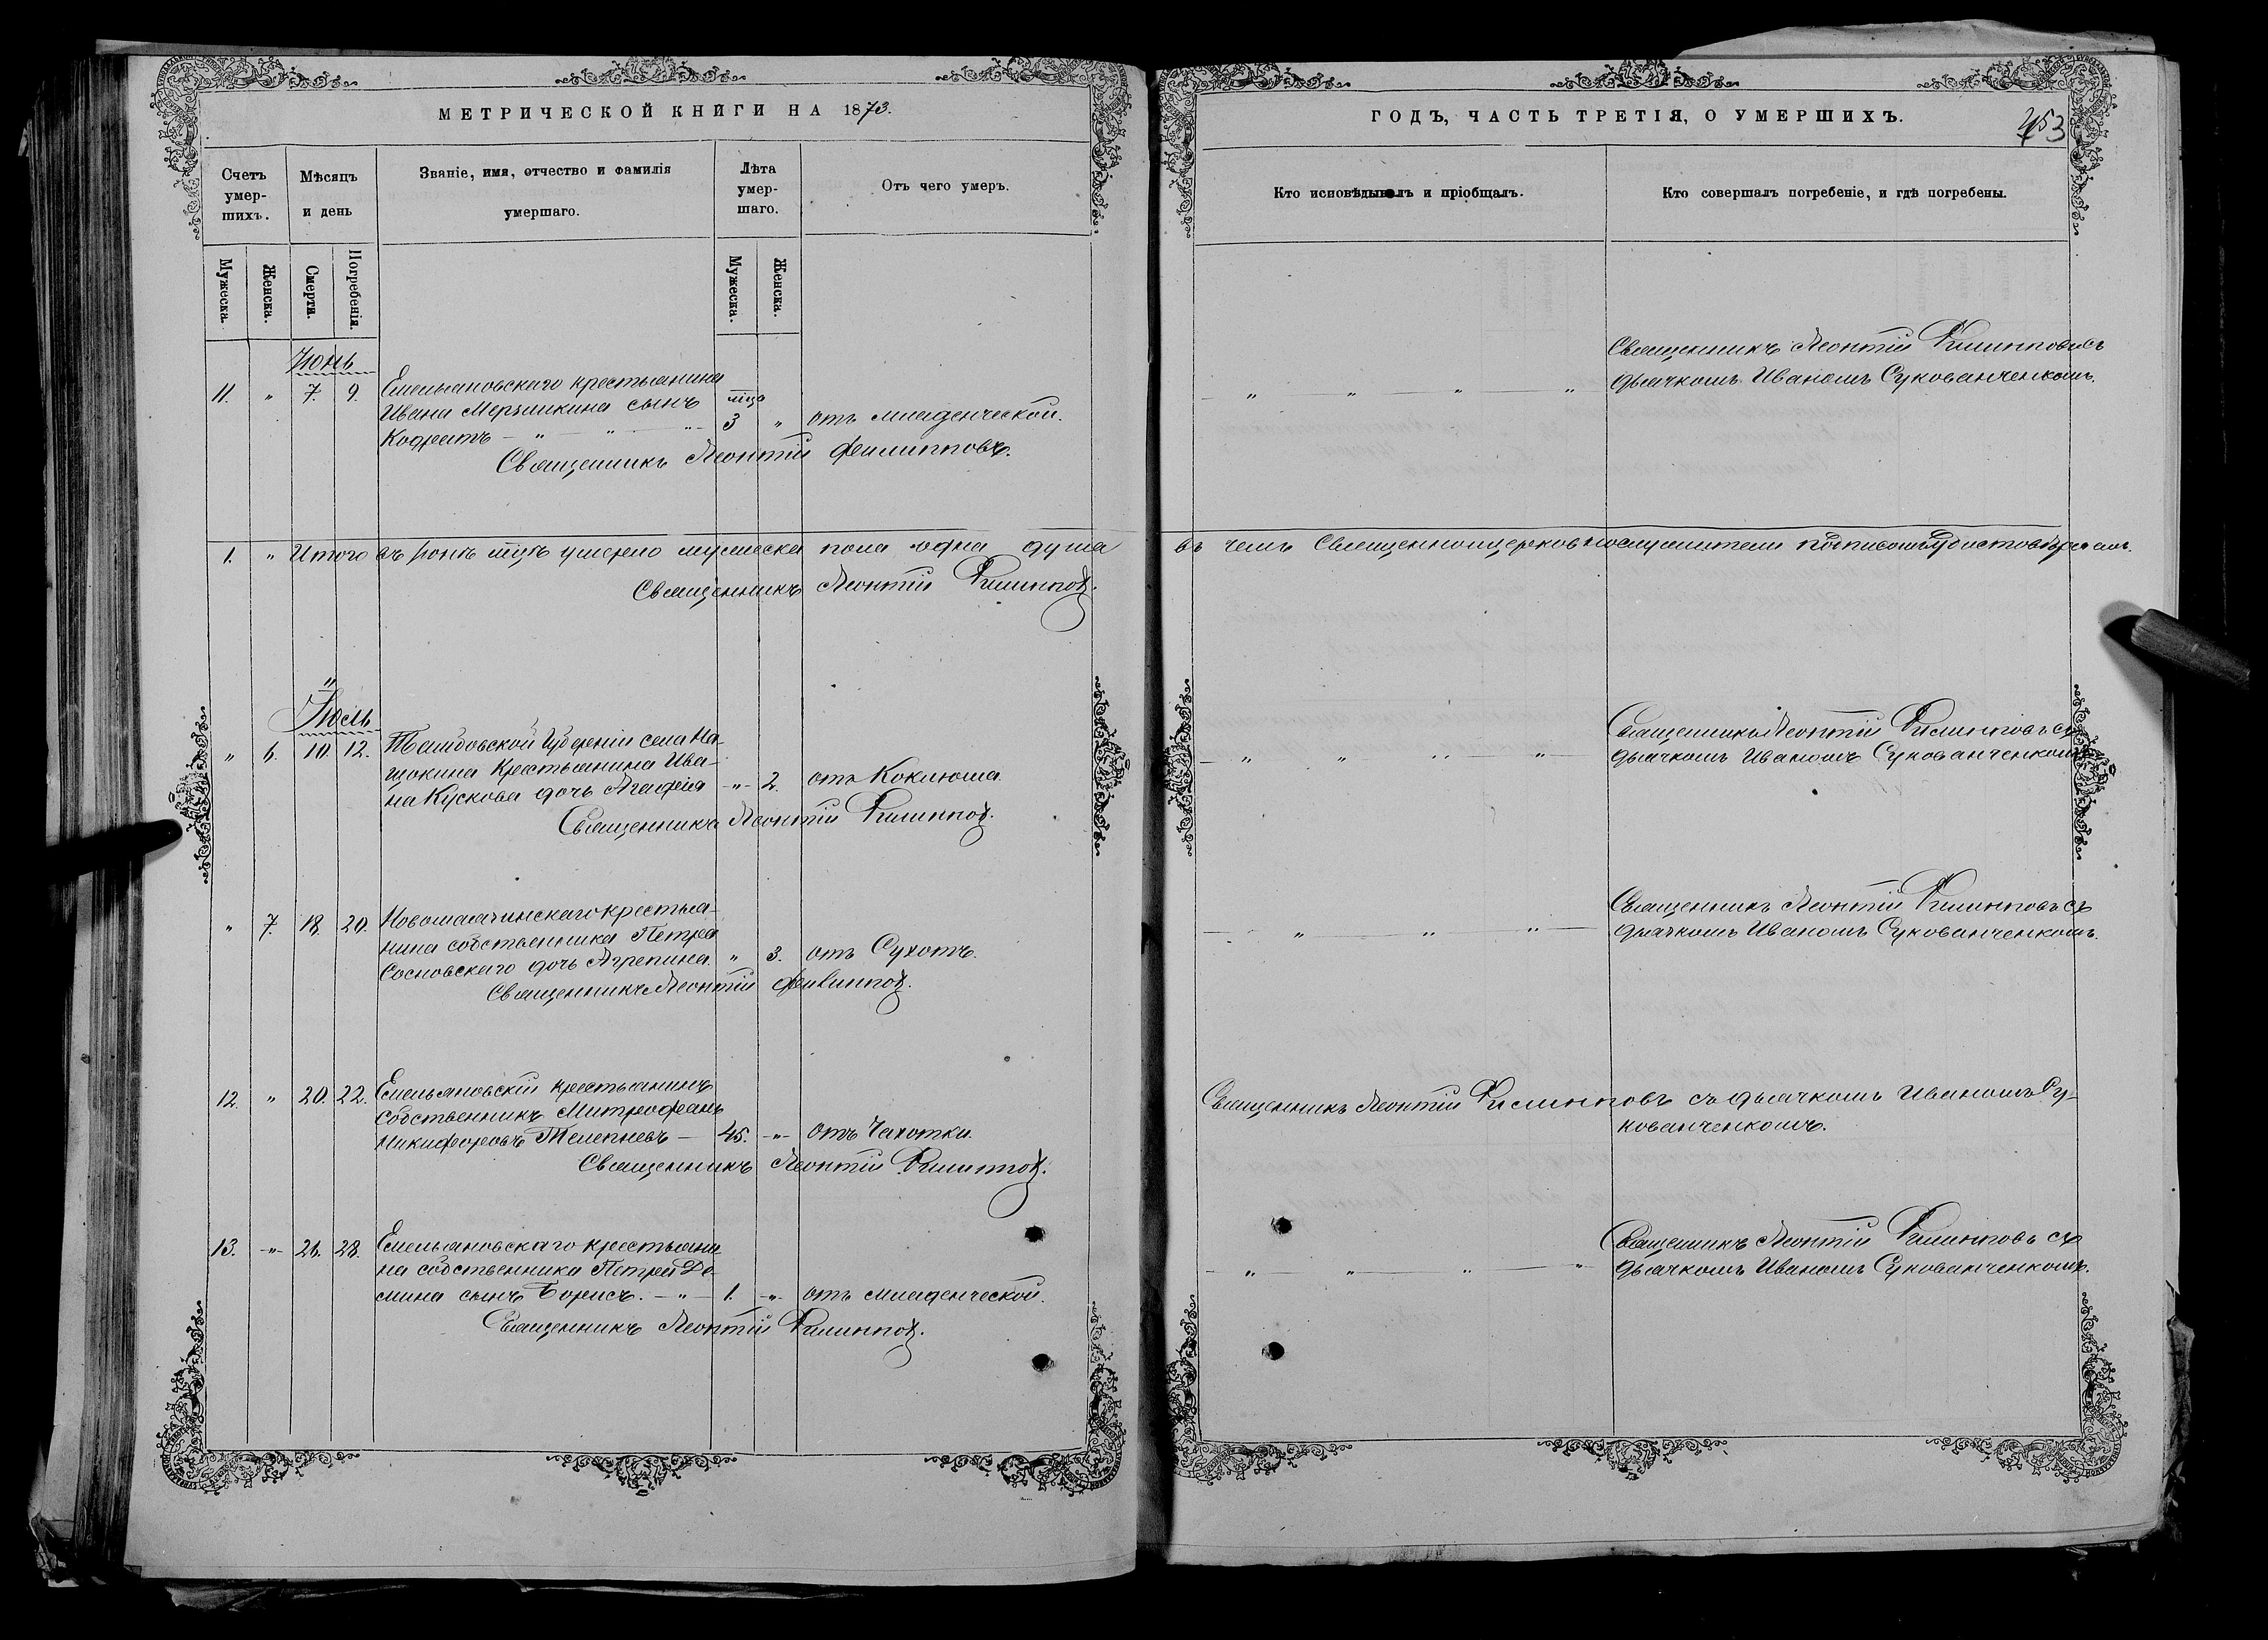 МЕТРИЧЕСКОЙ КНИГИ НА 1873.
Счетъ умер-шихъ.
Мѣсяцъ и день
Званіе, имя, отчество и фамилія умершаго.
Лѣта умер-шаго.
Отъ чего умеръ.
Мужеска.
Женска.
Смерти.
Погребенія.
Мужеска.
Женска.
Іюнь
11. " 7. 9. Емельяновскаго крестьянина
Ивана сынъ мца
Кодратъ - " - " - " - 3 " отъ младенческой.
Священникъ Леонтій Филипповъ.
1. " Итого въ Іюнѣ мцѣ умерло мужеска пола одна душа
Священникъ Леонтій Филиппов.
Іюль
" 6. 10. 12. Тамбовской Губерніи села На-
щокина Крестьянина Ива-
на Кускова дочь Агафія - " - 2. отъ Коклюша
Священникъ Леонтій Филиппов.
" 7. 18. 20. крестья-
нина собственника Петра
Сосновскаго дочь Агрепина. " 3. отъ Сухотъ.
Священникъ Леонтій Филиппов.
12. " 20. 22. Емельяновскій крестьянинъ
Собственникъ Митрофанъ
Никифоровъ Телепневъ - 45. - " - отъ Чахотки.
Священникъ Леонтій Филиппов.
13. - " - 26. 28. Емельяновскаго крестьяни-
на собственника Петра Де-
мина сынъ Борисъ. - " - 1. - " - отъ младенческой.
Священникъ Леонтій Филиппов.
ГОДЪ, ЧАСТЬ ТРЕТІЯ, О УМЕРШИХЪ.
453
Кто исповѣдывалъ и пріобщалъ.
Кто совершалъ погребеніе, и гдѣ погребены.
Священникъ Леонтій Филипповъ съ
- " " - " - " дьячкомъ Иваномъ Сукованченкомъ.
въ чемъ Священноцерковнослужители подписомъ удостовѣряемъ.
Священникъ Леонтій Филипповъ съ
- " " " - " - дьячкомъ Иваномъ Сукованченкомъ
Священникъ Леонтій Филипповъ съ
- " - " - " - дьячкомъ Иваномъ Сукованченкомъ.
Священникъ Леонтій Филипповъ съ дьячкомъ Иваномъ Су-
кованченкомъ.
Священникъ Леонтій Филипповъ съ
- " - " - " - " дьячкомъ Иваномъ Сукованченкомъ.